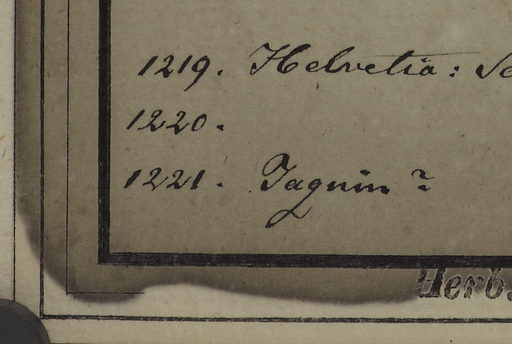 1219. Helvetia: Se
1220.
1221. Jaquin?
Herb.